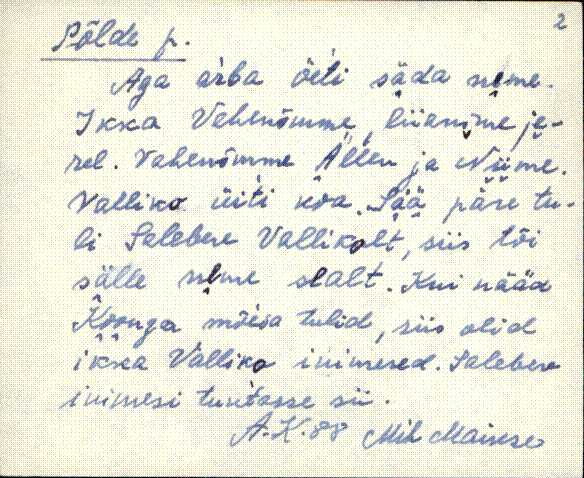 2
Põlde p.
Aga arba öeti säda neme.
Ikka Vahenõmme, liianime je-
rel. Vahenõmme Allen ja Niime.
Valliko üiti koa. Sää päre tu-
li Salebere Vallikolt, siis tõi
sälle neme sealt. Kui nääd
Koonga mõisa tulid, siis olid
ikka Valliko inimesed. Salebere
inimesi tuntasse sii.
A.K. 88 Mih